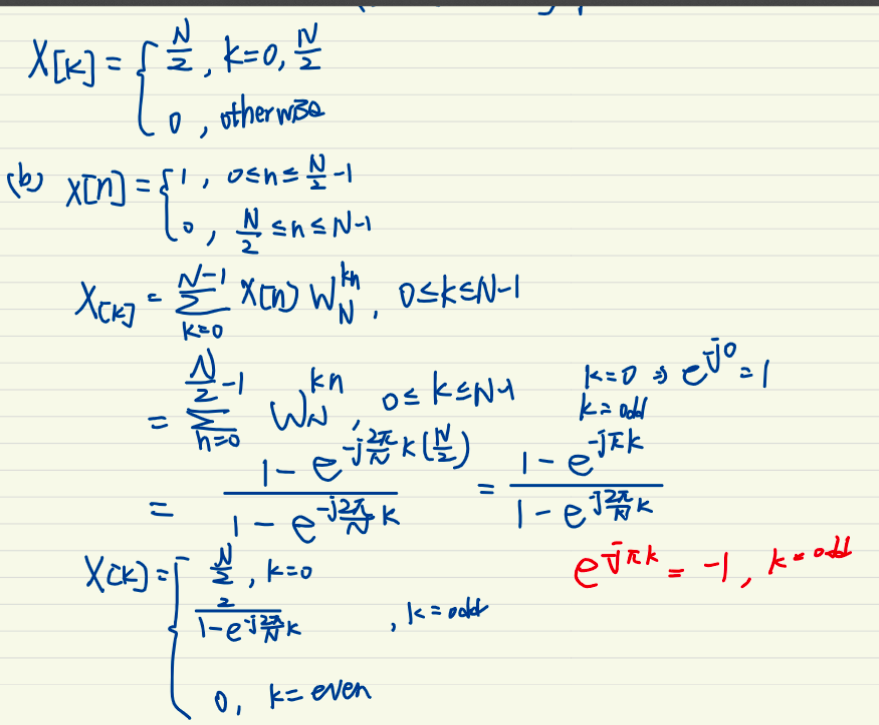 X[k] = { N/2 , k=0, N/2
0 , otherwise
(b) x[n] = { 1 , 0≤n≤ N/2 -1
0 , N/2 ≤n≤N-1
X[k] = Σ_{k=0}^{N-1} x[n] W_N^{kn} , 0≤k≤N-1
= Σ_{n=0}^{N/2 -1} W_N^{kn} , 0≤k≤N-1
k=0 ⇒ e^{-j0} = 1
k=odd
= (1 - e^{-j 2π/N k(N/2)}) / (1 - e^{-j 2π/N k}) = (1 - e^{-jπk}) / (1 - e^{-j 2π/N k})
e^{-jπk} = -1, k=odd
X[k] = { N/2 , k=0
2 / (1 - e^{-j 2π/N k}) , k=odd
0, k=even